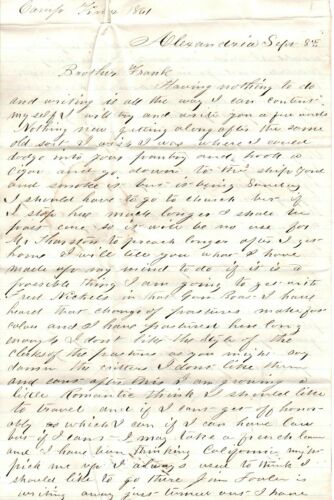 Camp 1861
Alexandria Sept 8th
Brother Frank
Having nothing to do
and writing is all the way I can content
myself I will try and write you a few words
Nothing new getting along after the same
old sort I wish I was where I could
dodge into your pantry and hook a
cigar and go down to the ship yard
and smoke it but it being Sunday
I should have to go to church but if
I stop here much longer I shall be
past so it will be no use for
Mr Thurston to preach longer after I get
home I will tell you what I have
made up my mind to do if it is a
possible thing I am going to get with
Fred Nichols in I have
heard that change of pastures makes fat
calves and I have pastured here long
enough I dont like the style of the
of the pasture as you might say
damn the critters I dont like them
and after this I am growing a
little Romantic think I should like
to travel and if I can get off honor-
ably which I can if I can have
but if I cant I may take a french leave
and I have been thinking California might
pick me up I always used to think I
should like to go there Jim
is writing away just turned over I have